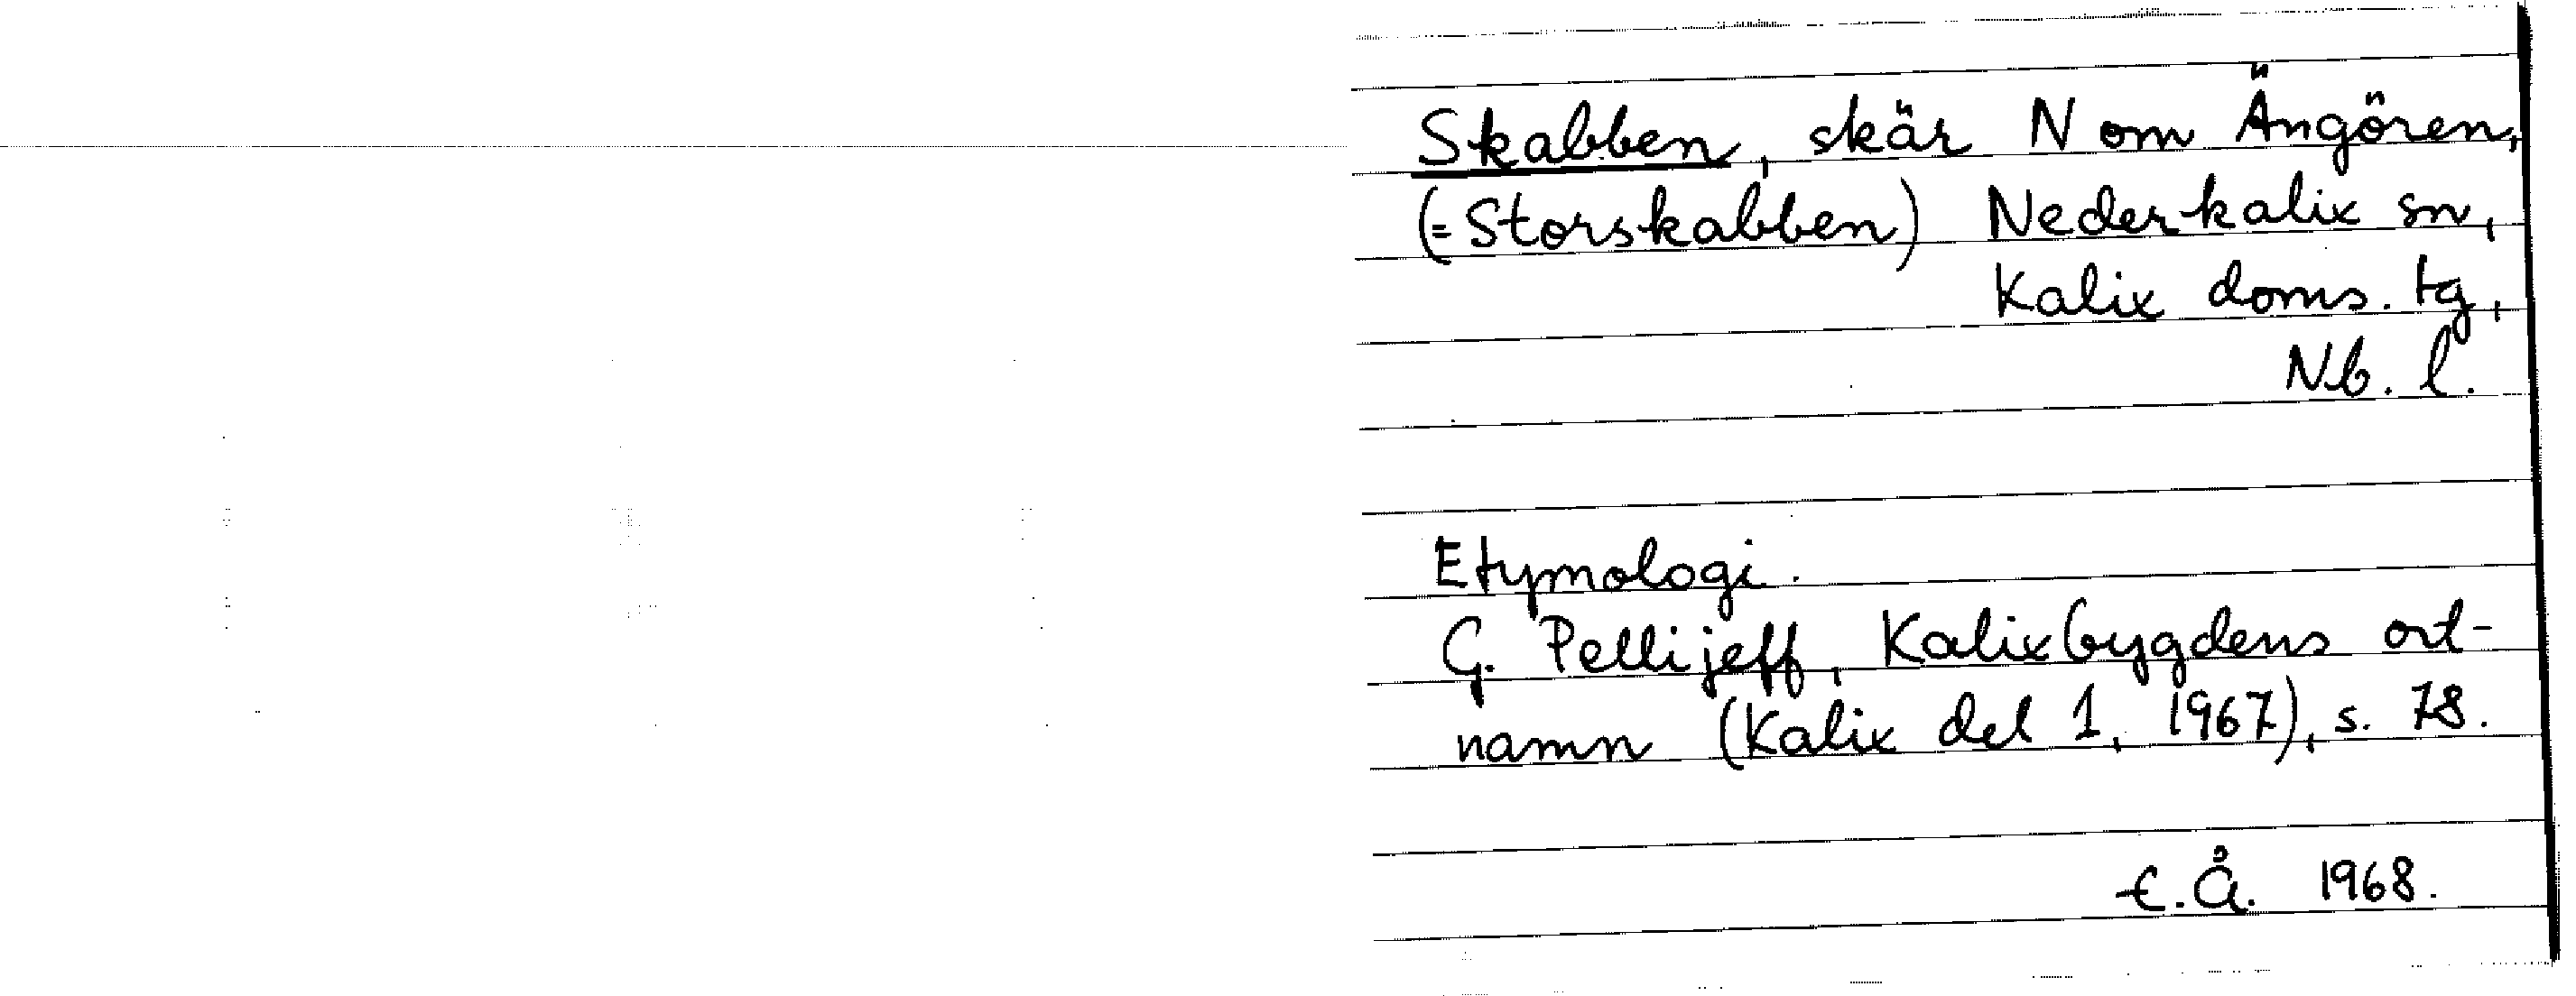 Skabben, skär N om Ängören,
(= Storskabben) Nederkalix sn,
Kalix doms. tg,
Nb. l.
Etymologi.
G. Pellijeff, Kalixbygdens ort-
namn (Kalix del 1, 1967), s. 78.
E. Å. 1968.